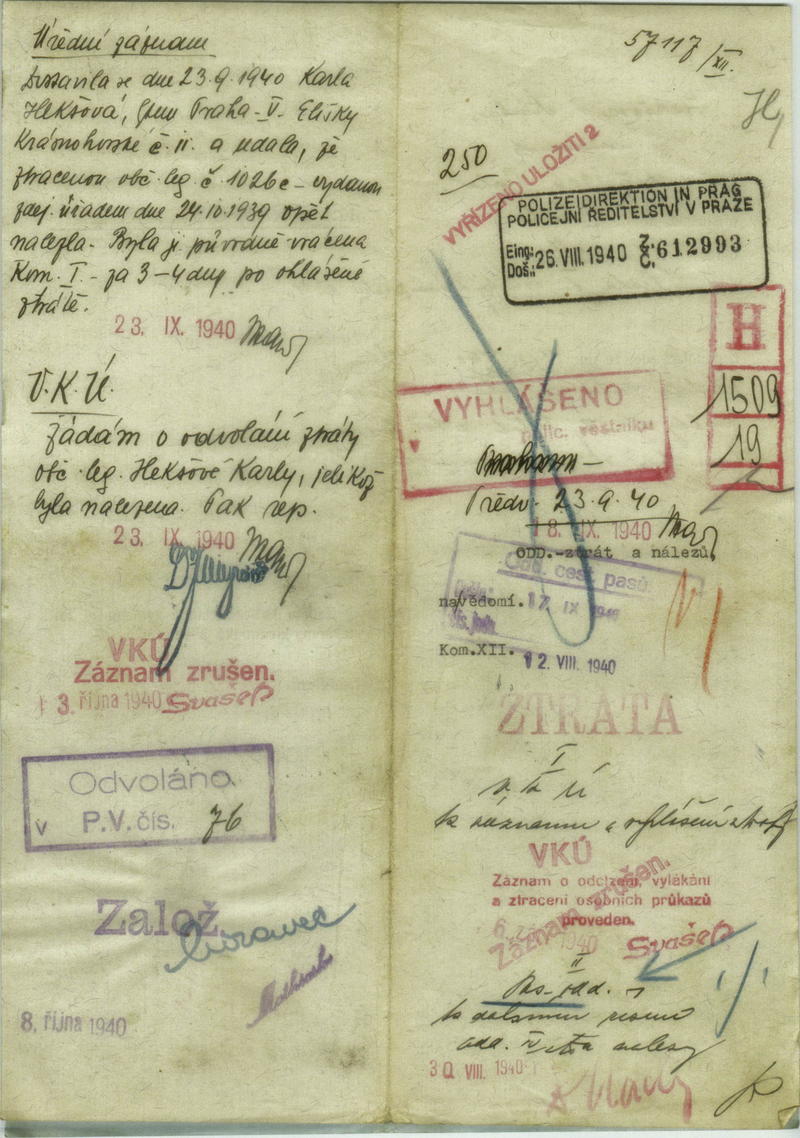 Úřední záznam
Dostavila se dne 23.9.1940 Karla
Hekšová, bytem Praha-V. Elišky
Krásnohorské č. 11. a udala, že
ztracenou obč. leg. č. 1026c - vydanou
zdej. úřadem dne 24.10.1939 opět
nalezla. Byla jí původně vrácena
Kom. I. - za 3-4 dny po ohlášené
ztrátě.
23. IX. 1940
V.K.Ú.
žádám o odvolání ztráty
obč. leg. Hekšové Karly, jelikož
byla nalezena. Pak rep.
23. IX. 1940
VKÚ
Záznam zrušen.
3. října 1940 Svašek
Odvoláno
v P.V. čís. 76
Založ
8. října 1940
57117/XII.
250
VYŘÍZENO ULOŽITI 2
POLIZEIDIREKTION IN PRAG
POLICEJNÍ ŘEDITELSTVÍ V PRAZE
Eing.: Doš.: 26. VIII. 1940 Z. Č. 612993
H
1509
19
VYHLÁŠENO
v polic. věstníku
Předv. 23.9.40
18. IX. 1940
ODD.-ztrát a nálezů,
Odd. cest. pasů
na vědomí. 17. IX. 1940
Kom.XII. 12. VIII. 1940
ZTRÁTA
I
V K Ú
k záznamu a vyhlášení ztráty
VKÚ
Záznam o odcizení, vylákání
a ztracení osobních průkazů
proveden.
Záznam zrušen.
6. 1940 Svašek
II
k dalšímu
30. VIII. 1940